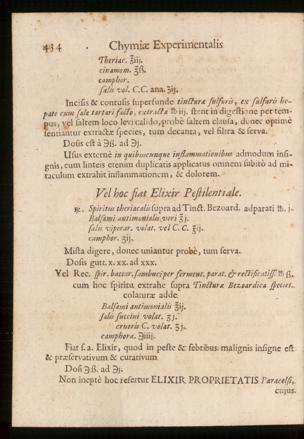 434 Chymiæ Experimentalis
Theriac. ℥iij.
cinamom. ℥ß.
camphor.
salis vol. C.C. ana. ʒij.
Incisis & contusis superfunde tincturæ sulfuris, ex sulfuris he-
pate cum sale tartari facto, extractæ ℔ iij. stent in digestione per tem-
pus, vel saltem loco levi calido, probè saltem clausa, donec optimè
sentiantur extractæ species, tum decanta, vel filtra & serva.
Dosis est à ℈ß. ad ℈j.
Usus externè in quibuscunque inflammationibus admodum insi-
gnis, cum linteis etenim duplicatis applicatus omnem subitò ad mi-
raculum extrahit inflammationem, & dolorem.
Vel hoc fiat Elixir Pestilentiale.
℞. Spiritus theriacalis supra ad Tinct. Bezoard. adparati ℔. j.
Balsami antimonialis veri ℥j.
salis viperar. volat. vel C. C. ℥ij.
camphor. ʒij.
Mista digere, donec uniantur probè, tum serva.
Dosis gutt. x. xx. ad xxx.
Vel Rec. spir. baccar. sambuci per ferment. parat. & rectificatiss. ℔ ß.
cum hoc spiritu extrahe supra Tincturæ Bezoardicæ species.
colaturæ adde
Balsami antimonialis ℥ij.
salis succini volat. ʒj.
cranii C. volat. ʒj.
camphoræ ℈iiij.
Fiat s.a. Elixir, quod in peste & febribus malignis insigne est
& præservativum & curativum
Dosi ℈ß. ad ℈j.
Non ineptè hoc refertur ELIXIR PROPRIETATIS Paracelsi,
cujus